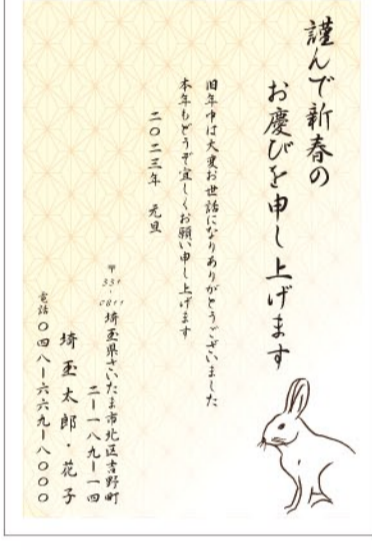 謹んで新春の
お慶びを申し上げます
旧年中は大変お世話になりありがとうございました
本年もどうぞ宜しくお願い申し上げます
二〇二三年 元旦
〒331-0811 埼玉県さいたま市北区吉野町
二ー一八九ー一四
埼玉太郎・花子
電話〇四八ー六六九ー八〇〇〇